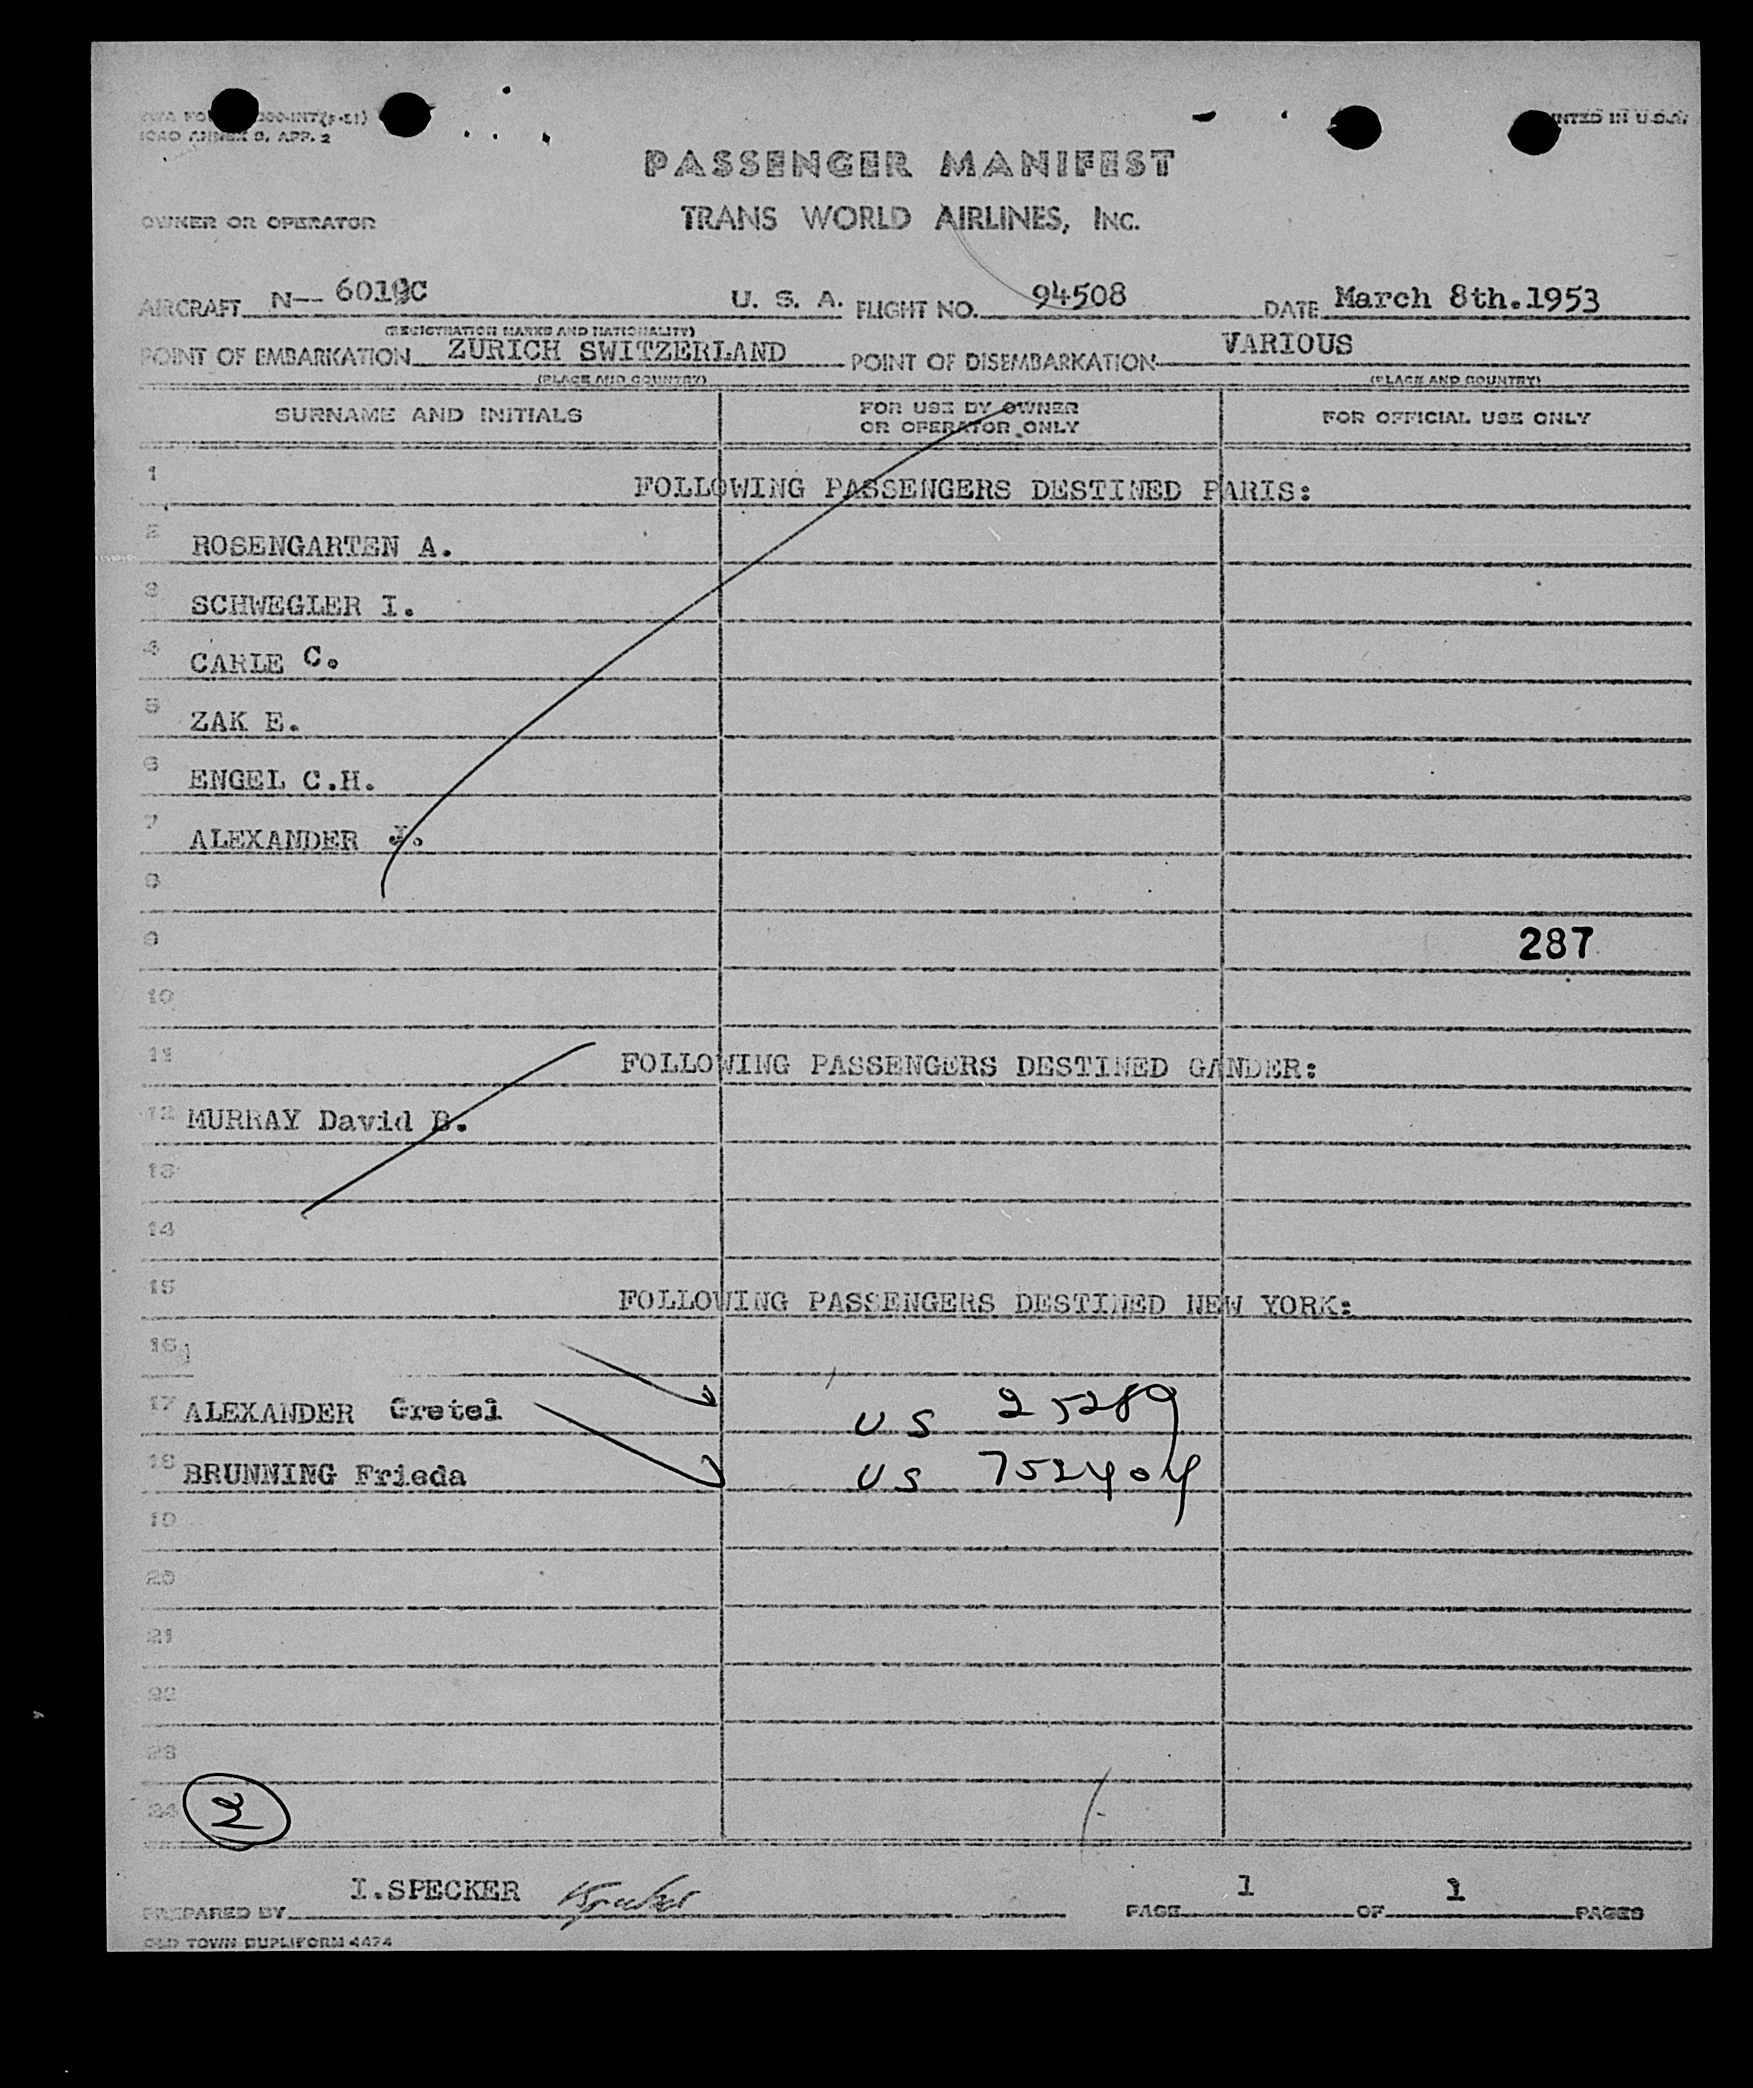 ICAO ANNEX 9, APP. 2
INTED IN U.S.A.
PASSENGER MANIFEST
OWNER OR OPERATOR
TRANS WORLD AIRLINES, INC.
AIRCRAFT N-- 6019C U. S. A. FLIGHT NO. 94508 DATE March 8th.1953
(REGISTRATION MARKS AND NATIONALITY)
POINT OF EMBARKATION ZURICH SWITZERLAND POINT OF DISEMBARKATION VARIOUS
(PLACE AND COUNTRY) (PLACE AND COUNTRY)
SURNAME AND INITIALS FOR USE BY OWNER OR OPERATOR ONLY FOR OFFICIAL USE ONLY
1 FOLLOWING PASSENGERS DESTINED PARIS:
2 ROSENGARTEN A.
3 SCHWEGLER I.
4 CARLE C.
5 ZAK E.
6 ENGEL C.H.
7 ALEXANDER J.
8
9 287
10
11 FOLLOWING PASSENGERS DESTINED GANDER:
12 MURRAY David B.
13
14
15 FOLLOWING PASSENGERS DESTINED NEW YORK:
16
17 ALEXANDER Gretel US 25289
18 BRUNNING Frieda US 752404
19
20
21
22
23
24 2
PREPARED BY I.SPECKER ISpecker PAGE 1 OF 1 PAGES
OLD TOWN DUPLIFORM 4474